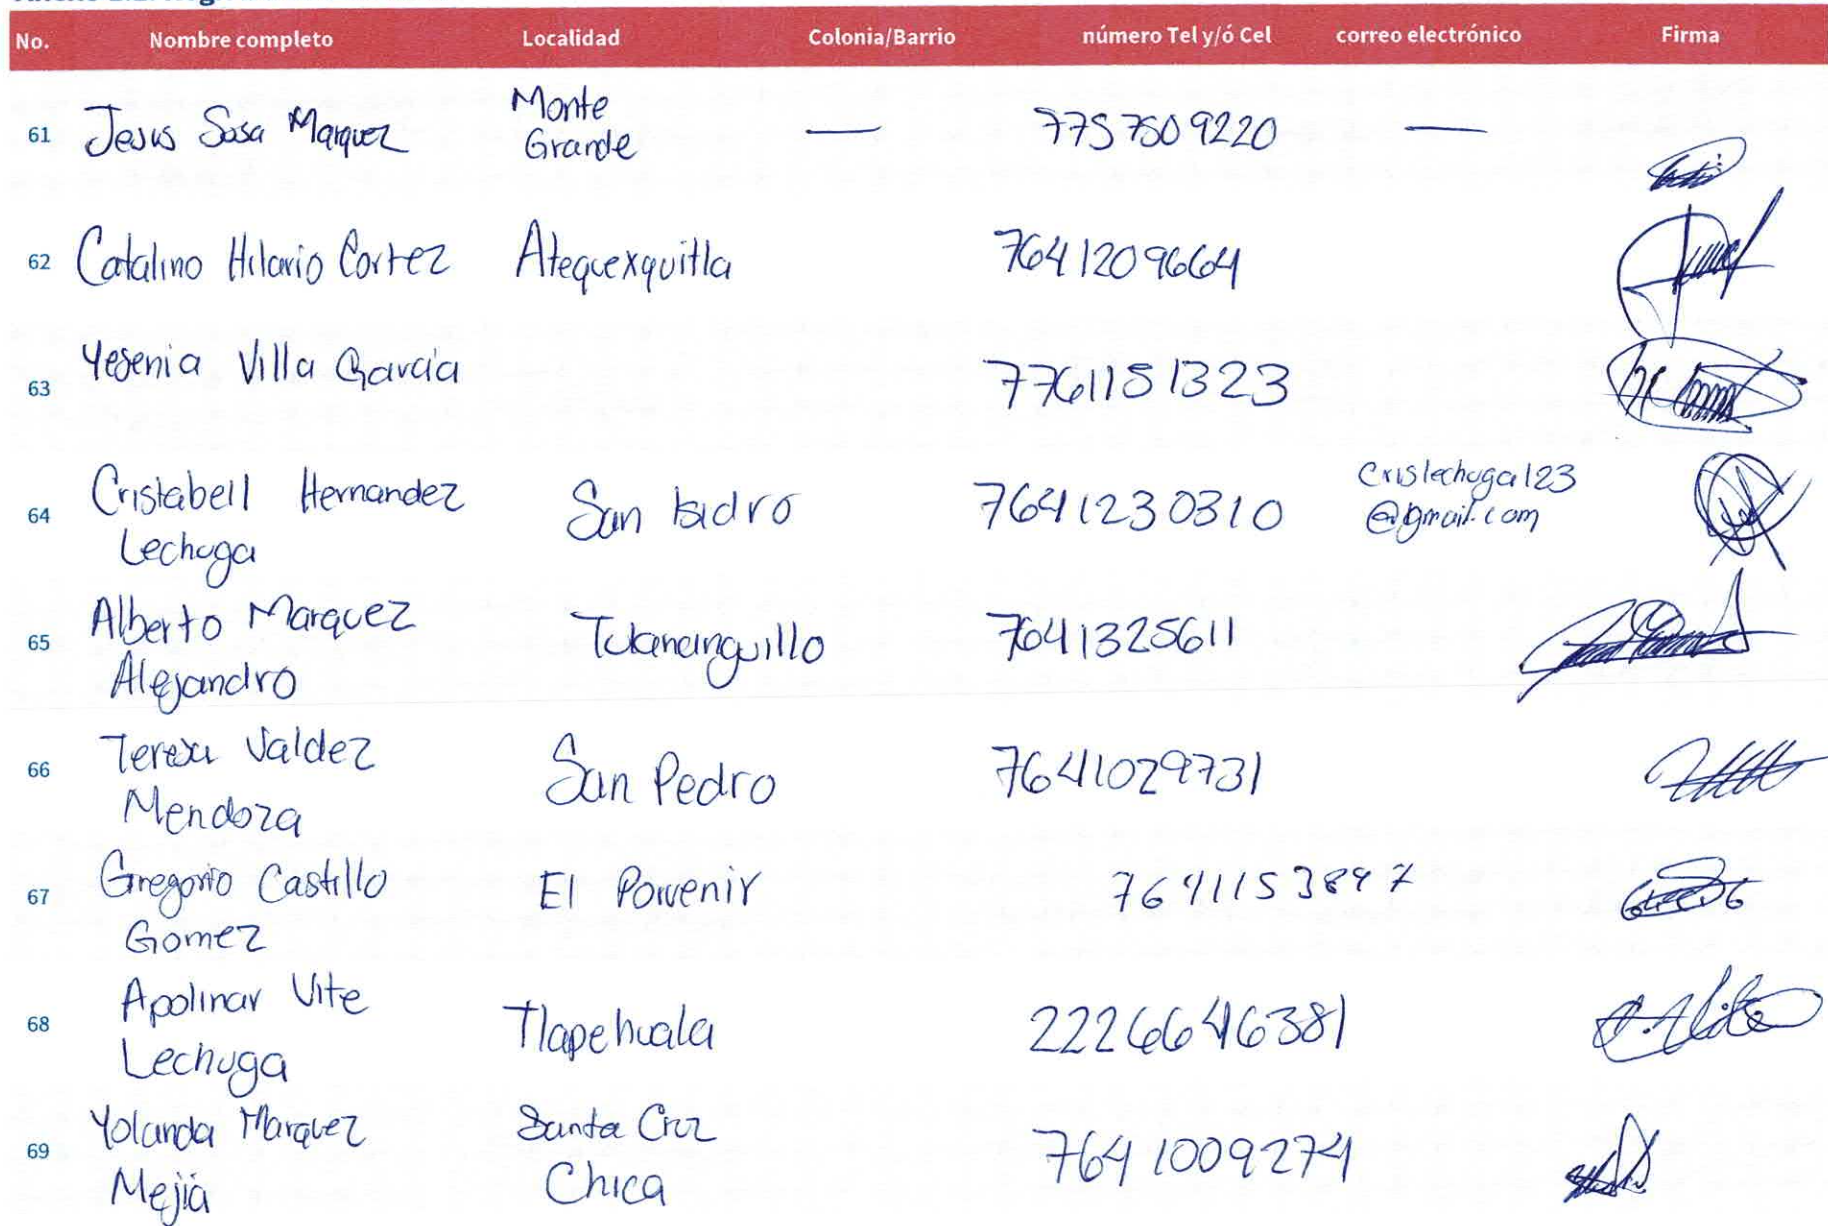 No. Nombre completo Localidad Colonia/Barrio número Tel y/ó Cel correo electrónico Firma
61 Jesus Sosa Marquez Monte Grande — 7757509220 —
62 Catalino Hilario Cortez Atequexquitla 7641209664
63 Yesenia Villa Garcia 7761151323
64 Cristabell Hernandez Lechuga San Isidro 7641230310 Crislechuga123@gmail.com
65 Alberto Marquez Alejandro 7641325611
66 Teresa Valdez Mendoza San Pedro 7641029731
67 Gregorio Castillo Gomez El Porvenir 7641153897
68 Apolinar Vite Lechuga Tlapehuala 2226646381
69 Yolanda Marquez Mejia Santa Cruz Chica 7641009274